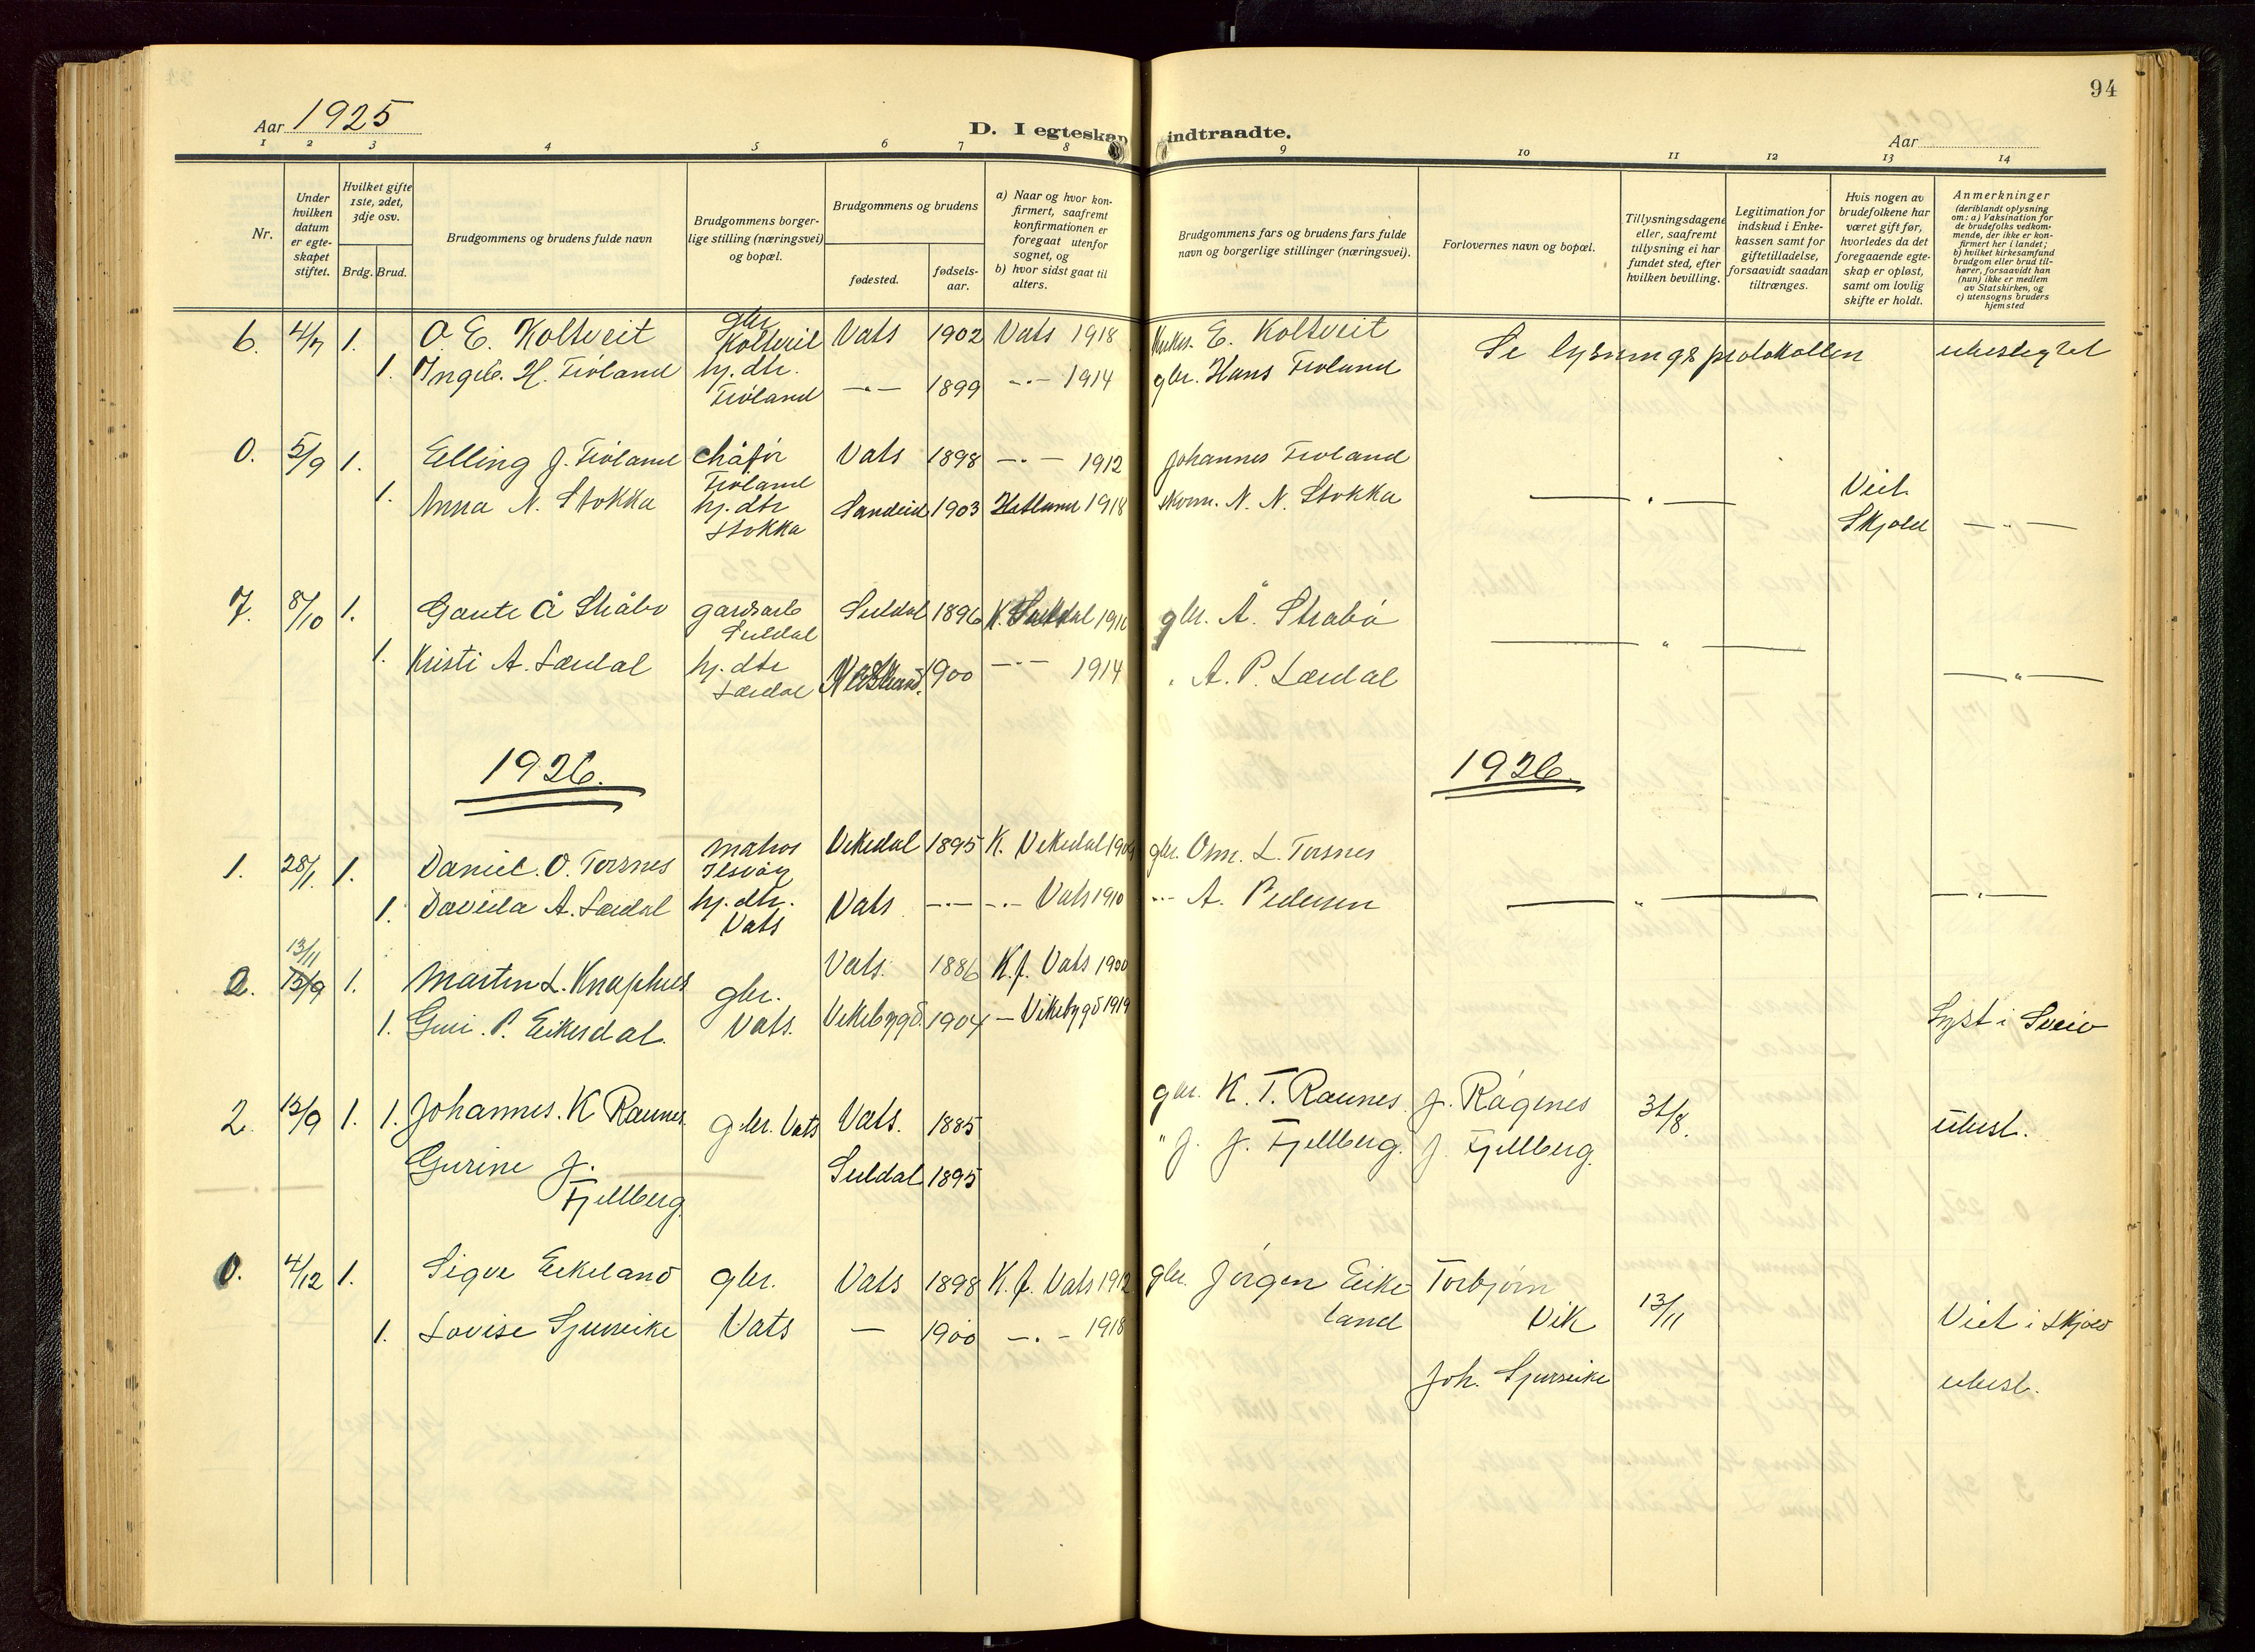 94
Aar 1925
D. I egteskap indtraadte.
Aar
1 2 3 4 5 6 7 8 9 10 11 12 13 14
Nr.
Under hvilken datum er egteskapet stiftet.
Hvilket gifte 1ste, 2det, 3dje osv.
Brdg. Brud.
Brudgommens og brudens fulde navn
Brudgommens borgerlige stilling (næringsvei) og bopæl.
Brudgommens og brudens
fødested.
fødselsaar.
a) Naar og hvor konfirmert, saafremt konfirmationen er foregaat utenfor sognet, og
b) hvor sidst gaat til alters.
Brudgommens fars og brudens fars fulde navn og borgerlige stillinger (næringsvei).
Forlovernes navn og bopæl.
Tillysningsdagene eller, saafremt tillysning ei har fundet sted, efter hvilken bevilling.
Legitimation for indskud i Enkekassen samt for giftetilladelse, forsaavidt saadan tiltrænges.
Hvis nogen av brudefolkene har været gift før, hvorledes da det foregaaende egteskap er opløst, samt om lovlig skifte er holdt.
Anmerkninger
(deriblandt oplysning om: a) Vaksination for de brudefolks vedkommende, der ikke er konfirmert her i landet; b) hvilket kirkesamfund brudgom eller brud tilhører, forsaavidt han (hun) ikke er medlem av Statskirken, og c) utensogns bruders hjemsted
6. 4/7 1. O. E. Koltveit gbr. Koltveit Vats 1902 Vats 1918 E. Koltveit Se lysningsprotokollen ubeslegtet
1. Ingeb. H. Frøland hj. dtr. Frøland -"- 1899 -"- 1914 gbr. Hans Frøland
0. 5/9 1. Elling J. Frøland chåfør Frøland Vats 1898 -"- 1912 Johannes Frøland
1. Anna N. Stokka hj. dtr Stokka Sandeid 1903 1918 N. N. Stokka -"- Viet Skjold -"-
7. 8/10 1. Gaute Å Stråbø gardsarb Suldal Suldal 1896 K. Suldal 1910 gbr. Å. Strabø -"-
1. Kristi A. Lærdal hj. dtr Lærdal 1900 -"- 1914 " A. P. Lærdal -"-
1926. 1926.
1. 28/1. 1. Daniel. O. Torsnes matros Ilsvåg Vikedal 1895 K. Vikedal 1909 gbr. Osm. L. Torsnes
1. Davida A. Lærdal hj. dtr. Vats Vats -"- -"- Vats 1910 -"- A. Pedersen -"- -"-
13/11
2. 15/9 1. Martin L. Knaphus gbr. Vats. Vats. 1886 K. f. Vats 1900
1. Guri. P. Eikesdal. Vikebygd. 1904 - Vikebygd 1919 Lyst i Sveio
2. 15/9 1. 1. Johannes. K Raunes. gbr. Vats Vats. 1885 gbr. K. T. Raunes. J. Rágenes 31/8. ubesl.
Gurine J. Fjellberg. Suldal 1895 " J. J. Fjellberg. J. Fjellberg.
0. 4/12 1. Sigve Eikeland gbr. Vats 1898 K. f. Vats 1912 gbr. Jørgen Eikeland Torbjørn Vik 13/11 Viet i Skjold
1. Lovise Sjurseike Vats — 1900 -"- 1918 Joh. Sjurseike ubesl.